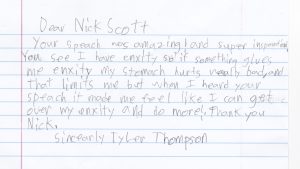 Dear Nick Scott
Your speach was amazing! and super
You see I have enxity so if something gives
me enxity my stomach hurts really bad and
that limits me but when I heard your
speach it made me feel like I can get
over my enxity and do more! Thank you
Nick.
Sincearly Iyler Thompson